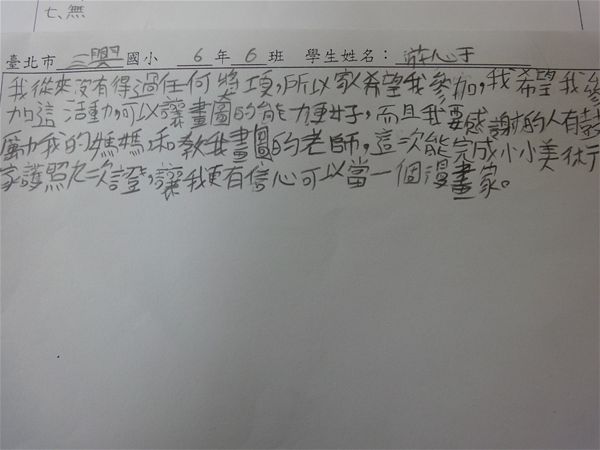 七、無
臺北市 三興 國小 6 年 6 班 學生姓名：莊心于
我從來沒有得過任何獎項，所以家人希望我參加，我希望我參
加這活動，可以讓畫圖的能力更好，而且我要感謝的人有鼓
勵我的媽媽和教我畫圖的老師，這次能完成小小美術
家護照九次證，讓我更有信心可以當一個漫畫家。